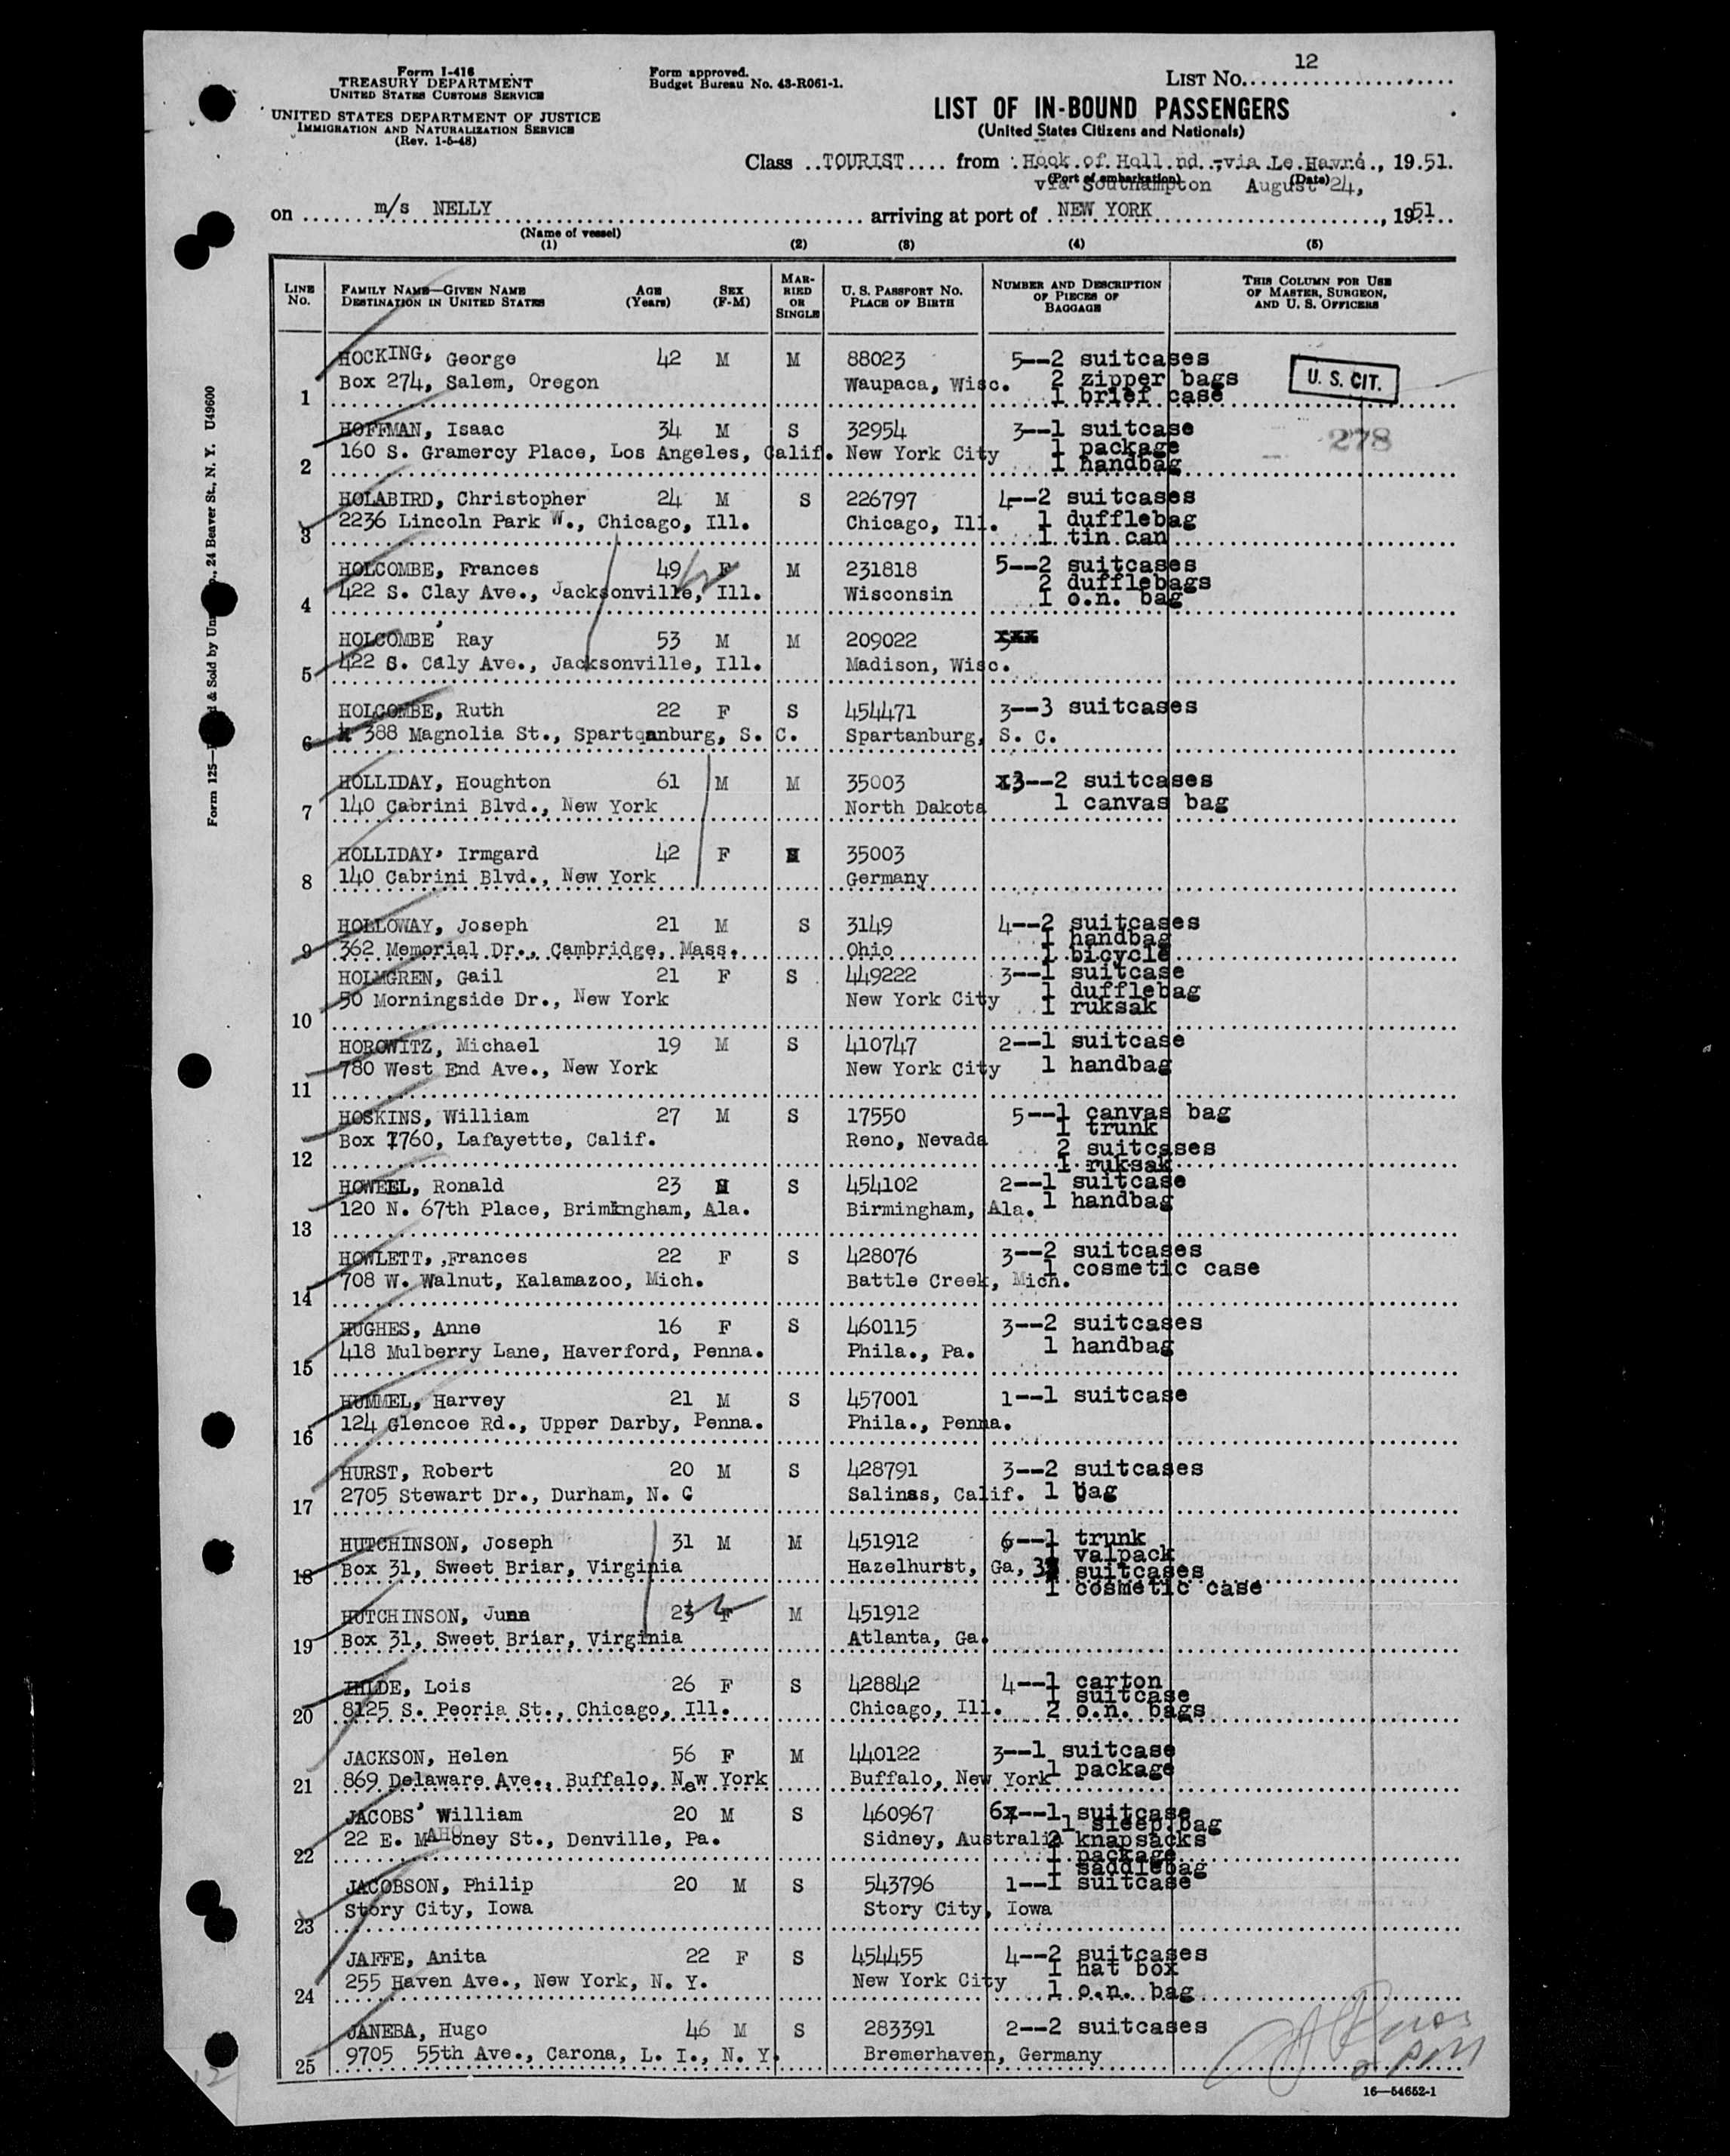 Form I-416
TREASURY DEPARTMENT
UNITED STATES CUSTOMS SERVICE
UNITED STATES DEPARTMENT OF JUSTICE
IMMIGRATION AND NATURALIZATION SERVICE
(Rev. 1-5-48)
Form approved.
Budget Bureau No. 43-R061-1.
LIST No. 12
LIST OF IN-BOUND PASSENGERS
(United States Citizens and Nationals)
Class ..TOURIST.... from .Hook.of.Holl.nd.,via.Le.Havre., 19.51.
(Port of embarkation) (Date)
via Southampton August 24,
on m/s NELLY arriving at port of NEW YORK, 1951
(Name of vessel)
(1) (2) (3) (4) (5)
LINE No. FAMILY NAME—GIVEN NAME DESTINATION IN UNITED STATES AGE (Years) SEX (F-M) MARRIED OR SINGLE U. S. PASSPORT No. PLACE OF BIRTH NUMBER AND DESCRIPTION OF PIECES OF BAGGAGE THIS COLUMN FOR USE OF MASTER, SURGEON, AND U. S. OFFICERS
HOCKING, George 42 M M 88023 5--2 suitcases
Box 274, Salem, Oregon Waupaca, Wisc. 2 zipper bags
1 1 brief case
U. S. CIT.
HOFFMAN, Isaac 34 M S 32954 3--1 suitcase
278
160 S. Gramercy Place, Los Angeles, Calif. New York City 1 package
2 1 handbag
HOLABIRD, Christopher 24 M S 226797 4--2 suitcases
2236 Lincoln Park W., Chicago, Ill. Chicago, Ill. 1 dufflebag
3 1 tin can
HOLCOMBE, Frances 49 F M 231818 5--2 suitcases
422 S. Clay Ave., Jacksonville, Ill. Wisconsin 2 dufflebags
4 1 o.n. bag
HOLCOMBE, Ray 53 M M 209022 xxx
422 S. Caly Ave., Jacksonville, Ill. Madison, Wisc.
5
HOLCOMBE, Ruth 22 F S 454471 3--3 suitcases
6 388 Magnolia St., Spartqanburg, S. C. Spartanburg, S. C.
HOLLIDAY, Houghton 61 M M 35003 x3--2 suitcases
140 Cabrini Blvd., New York North Dakota 1 canvas bag
7
HOLLIDAY, Irmgard 42 F M 35003
140 Cabrini Blvd., New York Germany
8
HOLLOWAY, Joseph 21 M S 3149 4--2 suitcases
1 handbag
9 362 Memorial Dr., Cambridge, Mass. Ohio 1 bicycle
HOLMGREN, Gail 21 F S 449222 3--1 suitcase
50 Morningside Dr., New York New York City 1 dufflebag
10 1 ruksak
HOROWITZ, Michael 19 M S 410747 2--1 suitcase
780 West End Ave., New York New York City 1 handbag
11
HOSKINS, William 27 M S 17550 5--1 canvas bag
1 trunk
Box 1760, Lafayette, Calif. Reno, Nevada 2 suitcases
12 1 ruksak
HOWEEL, Ronald 23 M S 454102 2--1 suitcase
120 N. 67th Place, Brimingham, Ala. Birmingham, Ala. 1 handbag
13
HOWLETT, ,Frances 22 F S 428076 3--2 suitcases
1 cosmetic case
708 W. Walnut, Kalamazoo, Mich. Battle Creek, Mich.
14
HUGHES, Anne 16 F S 460115 3--2 suitcases
418 Mulberry Lane, Haverford, Penna. Phila., Pa. 1 handbag
15
HUMMEL, Harvey 21 M S 457001 1--1 suitcase
124 Glencoe Rd., Upper Darby, Penna. Phila., Penna.
16
HURST, Robert 20 M S 428791 3--2 suitcases
2705 Stewart Dr., Durham, N. C Salinas, Calif. 1 bag
17
HUTCHINSON, Joseph 31 M M 451912 6--1 trunk
1 valpack
18 Box 31, Sweet Briar, Virginia Hazelhurst, Ga, 3 suitcases
1 cosmetic case
HUTCHINSON, Juna 23 F M 451912
19 Box 31, Sweet Briar, Virginia Atlanta, Ga.
IHLDE, Lois 26 F S 428842 4--1 carton
1 suitcase
20 8125 S. Peoria St., Chicago, Ill. Chicago, Ill. 2 o.n. bags
JACKSON, Helen 56 F M 440122 3--1 suitcase
1 package
21 869 Delaware Ave., Buffalo, New York Buffalo, New York
JACOBS, William 20 M S 460967 6x--1 suitcase
1 sleep.bag
22 E. MAHOney St., Denville, Pa. Sidney, Australia 2 knapsacks
22 1 package
1 saddlebag
JACOBSON, Philip 20 M S 543796 1--1 suitcase
Story City, Iowa Story City, Iowa
23
JAFFE, Anita 22 F S 454455 4--2 suitcases
1 hat box
255 Haven Ave., New York, N. Y. New York City 1 o.n. bag
24
JANEBA, Hugo 46 M S 283391 2--2 suitcases
25 9705 55th Ave., Carona, L. I., N. Y. Bremerhaven, Germany
16—54652-1
Form 125— & Sold by Un , 24 Beaver St., N. Y. U49600
12